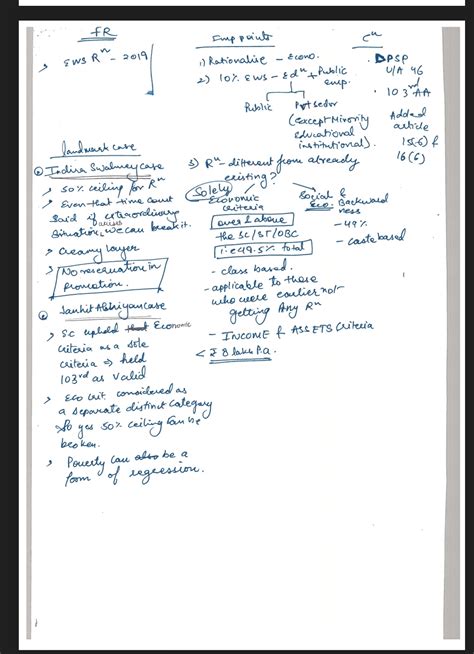 FR
> EWS Rⁿ - 2019
Landmark case
Indira Swahney case
> 50% ceiling for Rⁿ
> Even that time court
said if extraordinary
situation, arises we can break it.
> Creamy layer
> No reservation in
promotion.
Janhit Abhiyan case
> SC uphold that Economic
criteria as a sole
criteria → held
103rd as valid
> Eco crit. considered as
a separate distinct category
so yes 50% ceiling can be
broken.
> Poverty can also be a
form of regression.
Imp points
1) Rationalise - Econo.
2) 10% EWS - Edⁿ + Public
emp.
Public
Pvt sector
(except Minority
educational
institutional).
3) Rⁿ - different from already
existing?
Solely
Economic
criteria
over & above
the SC/ST/OBC
i.e 49.5% total
- class based.
- applicable to those
who were earlier not
getting Any Rⁿ
- INCOME & ASSETS criteria
< ₹ 8 lakh P.a.
Social &
Eco. Backward
ness
- 49%
- caste based
Cⁿ
DPSP
U/A 46
• 103rd AA
Added
article
15(6) &
16(6)